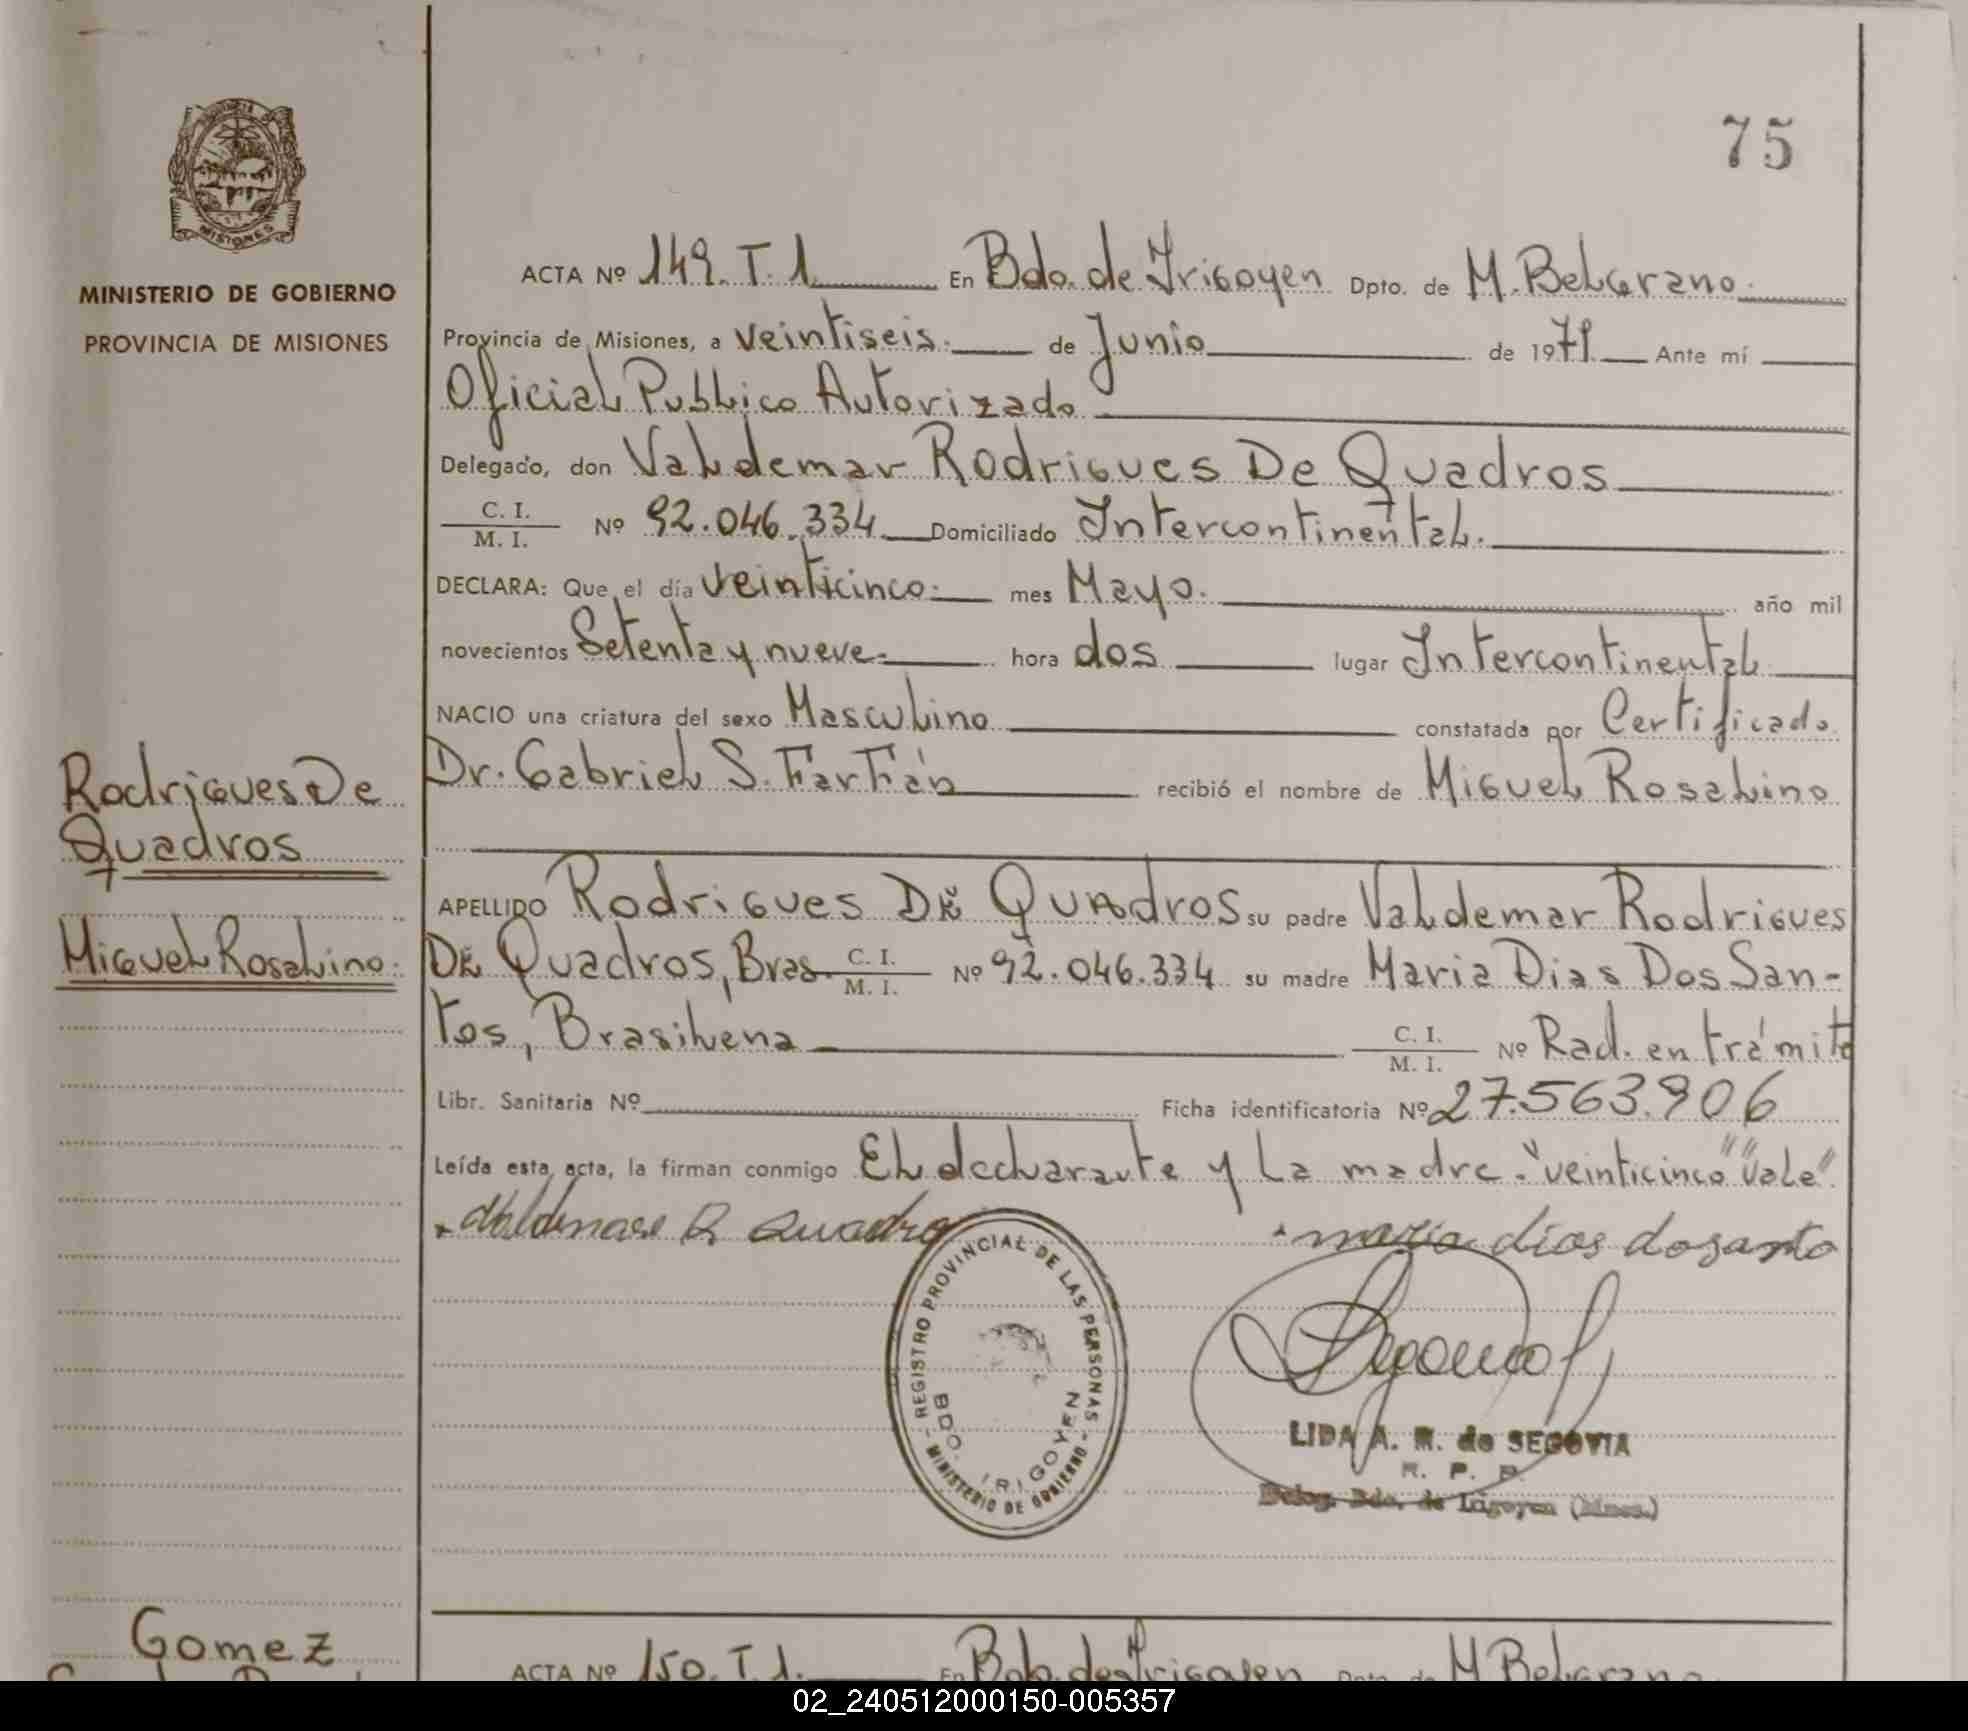 75
MINISTERIO DE GOBIERNO
PROVINCIA DE MISIONES
MISIONES
ACTA Nº 149. T. 1. En Bdo. de Irigoyen Dpto. de M. Belgrano.
Provincia de Misiones, a veintiseis. de Junio de 1979. Ante mí
Oficial Publico Autorizado
Delegado, don Valdemar Rodrigues De Quadros
C. I. / M. I. Nº 92.046.334 Domiciliado Intercontinental.
DECLARA: Que el día veinticinco. mes Mayo. año mil
novecientos Setenta y nueve. hora dos lugar Intercontinental
NACIO una criatura del sexo Masculino constatada por Certificado
Dr. Gabriel S. Farfán recibió el nombre de Miguel Rosalino
Rodrigues De
Quadros
Miguel Rosalino.
APELLIDO Rodrigues De Quadros su padre Valdemar Rodrigues
De Quadros, Bras. C. I. / M. I. Nº 92.046.334 su madre Maria Dias Dos San-
tos, Brasilena C. I. / M. I. Nº Rad. en trámite
Libr. Sanitaria Nº Ficha identificatoria Nº 27.563.906
Leída esta acta, la firman conmigo El declarante y La madre. "veinticinco" "Vale"
Valdemar R Quadro
maria dias dosanto
REGISTRO PROVINCIAL DE LAS PERSONAS
BDO. IRIGOYEN
MINISTERIO DE GOBIERNO
LIDA A. M. de SEGOVIA
R. P. P.
Deleg. Bdo. de Irigoyen (Mnes.)
Gomez
ACTA Nº 150. T 1. En Bdo. de Irigoyen Dpto. de M Belgrano
02_240512000150-005357